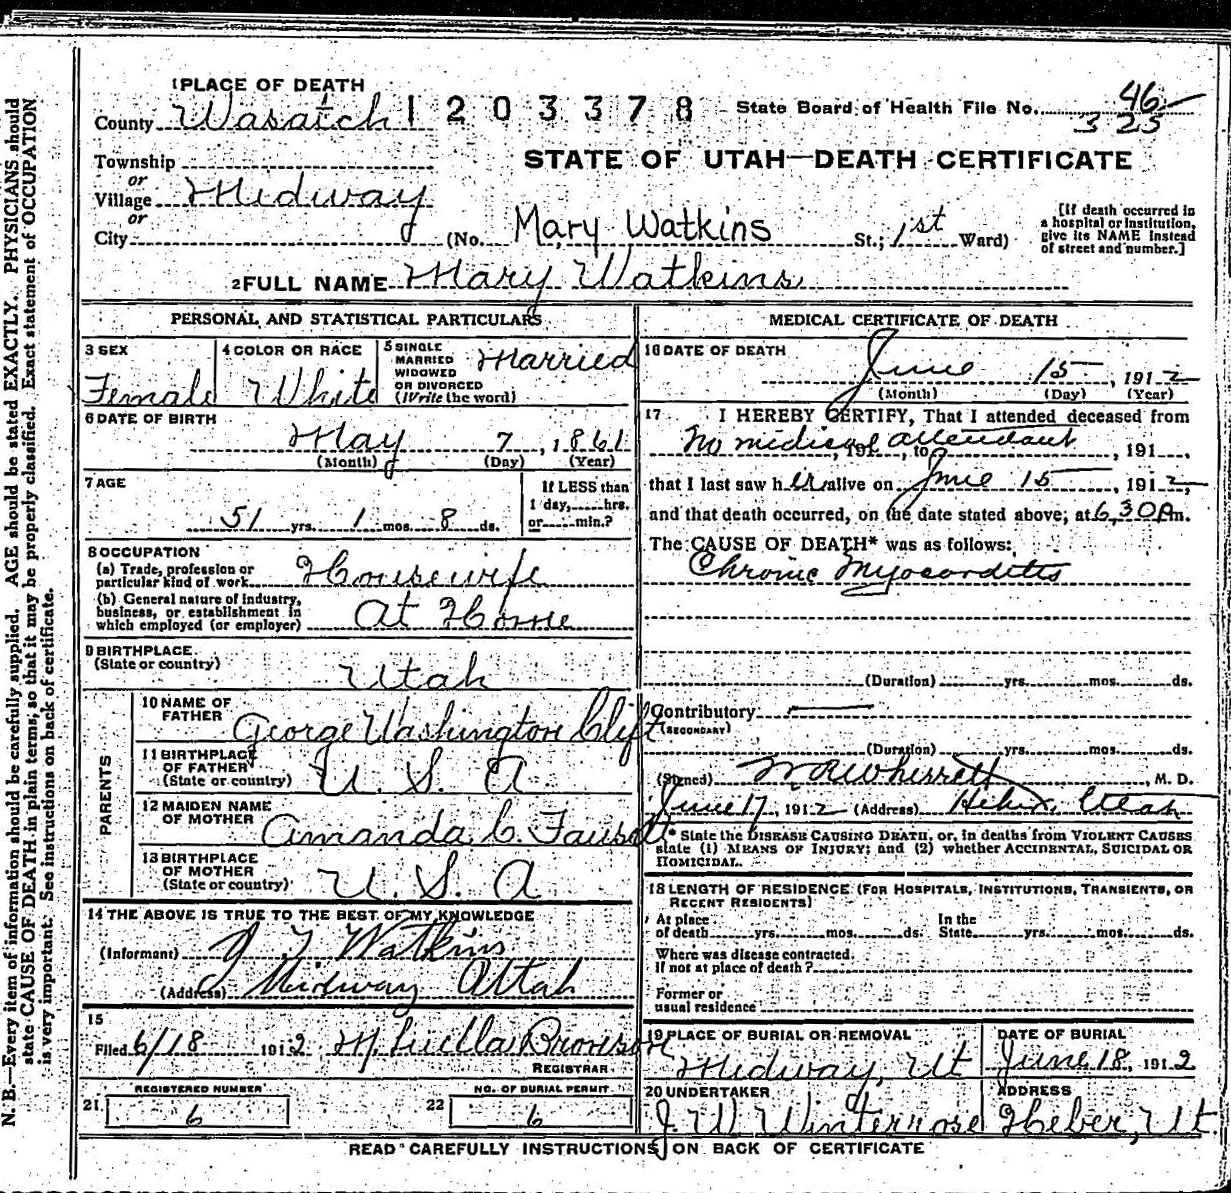 1 PLACE OF DEATH
County Wasatch 1 2 0 3 3 7 8 State Board of Health File No. 46
325
Township
or
Village Midway
or
City (No. Mary Watkins St.; 1st Ward)
STATE OF UTAH—DEATH CERTIFICATE
[If death occurred in a hospital or institution, give its NAME instead of street and number.]
2 FULL NAME Mary Watkins
PERSONAL AND STATISTICAL PARTICULARS
3 SEX Female
4 COLOR OR RACE White
5 SINGLE MARRIED WIDOWED OR DIVORCED (Write the word) Married
6 DATE OF BIRTH
May 7, 1861
(Month) (Day) (Year)
7 AGE
51 yrs. 1 mos. 8 ds.
If LESS than 1 day,......hrs. or......min.?
8 OCCUPATION
(a) Trade, profession or particular kind of work Housewife
(b) General nature of industry, business, or establishment in which employed (or employer) At Home
9 BIRTHPLACE
(State or country) Utah
PARENTS
10 NAME OF FATHER George Washington Clift
11 BIRTHPLACE OF FATHER (State or country) U. S. A
12 MAIDEN NAME OF MOTHER Amanda C. Fausett
13 BIRTHPLACE OF MOTHER (State or country) U. S. A
14 THE ABOVE IS TRUE TO THE BEST OF MY KNOWLEDGE
(Informant) Watkins
(Address) Midway Utah
15
Filed 6/18 1912 M. Luella Bronson
REGISTRAR
REGISTERED NUMBER
21 6
NO. OF BURIAL PERMIT
22 6
MEDICAL CERTIFICATE OF DEATH
16 DATE OF DEATH
June 15, 1912
(Month) (Day) (Year)
17 I HEREBY CERTIFY, That I attended deceased from
No medical attendant, 191..., to 191...,
that I last saw her alive on June 15, 1912,
and that death occurred, on the date stated above, at 6,30 Am.
The CAUSE OF DEATH* was as follows:
Chronic Myocarditis
(Duration) yrs. mos. ds.
Contributory —
(SECONDARY)
(Duration) yrs. mos. ds.
(Signed) Wherritt M. D.
June 17, 1912 (Address) Heber, Utah
* State the DISEASE CAUSING DEATH, or, in deaths from VIOLENT CAUSES
state (1) MEANS OF INJURY; and (2) whether ACCIDENTAL, SUICIDAL OR
HOMICIDAL.
18 LENGTH OF RESIDENCE (FOR HOSPITALS, INSTITUTIONS, TRANSIENTS, OR
RECENT RESIDENTS)
At place of death yrs. mos. ds. In the State yrs. mos. ds.
Where was disease contracted,
If not at place of death?
Former or
usual residence
19 PLACE OF BURIAL OR REMOVAL
Midway, Ut
DATE OF BURIAL
June 18, 1912
20 UNDERTAKER
J. W. Winterrose
ADDRESS
Heber, Ut.
READ CAREFULLY INSTRUCTIONS ON BACK OF CERTIFICATE
N. B.—Every item of information should be carefully supplied. AGE should be stated EXACTLY. PHYSICIANS should
state CAUSE OF DEATH in plain terms, so that it may be properly classified. Exact statement of OCCUPATION
is very important. See instructions on back of certificate.